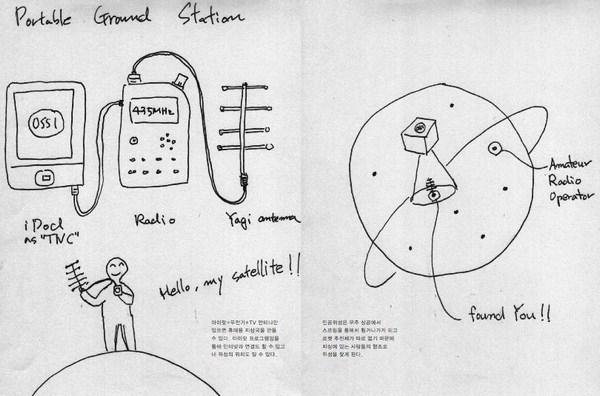 Portable Ground Station
OSSI
435MHz
iPod
as "TNC"
Radio
Yagi antenna
Hello, my satellite!!
아이팟+무전기+TV 안테나만
있으면 휴대용 지상국을 만들
수 있다. 아이팟 프로그램밍을
통해 인터넷과 연결도 할 수 있고
내 위성의 위치도 알 수 있다.
Amateur
Radio
Operator
found You!!
인공위성은 우주 상공에서
스프링을 통해서 튕겨나가게 되고
로켓 추진체가 따로 없기 때문에
지상에 있는 사람들의 협조로
위성을 찾게 된다.